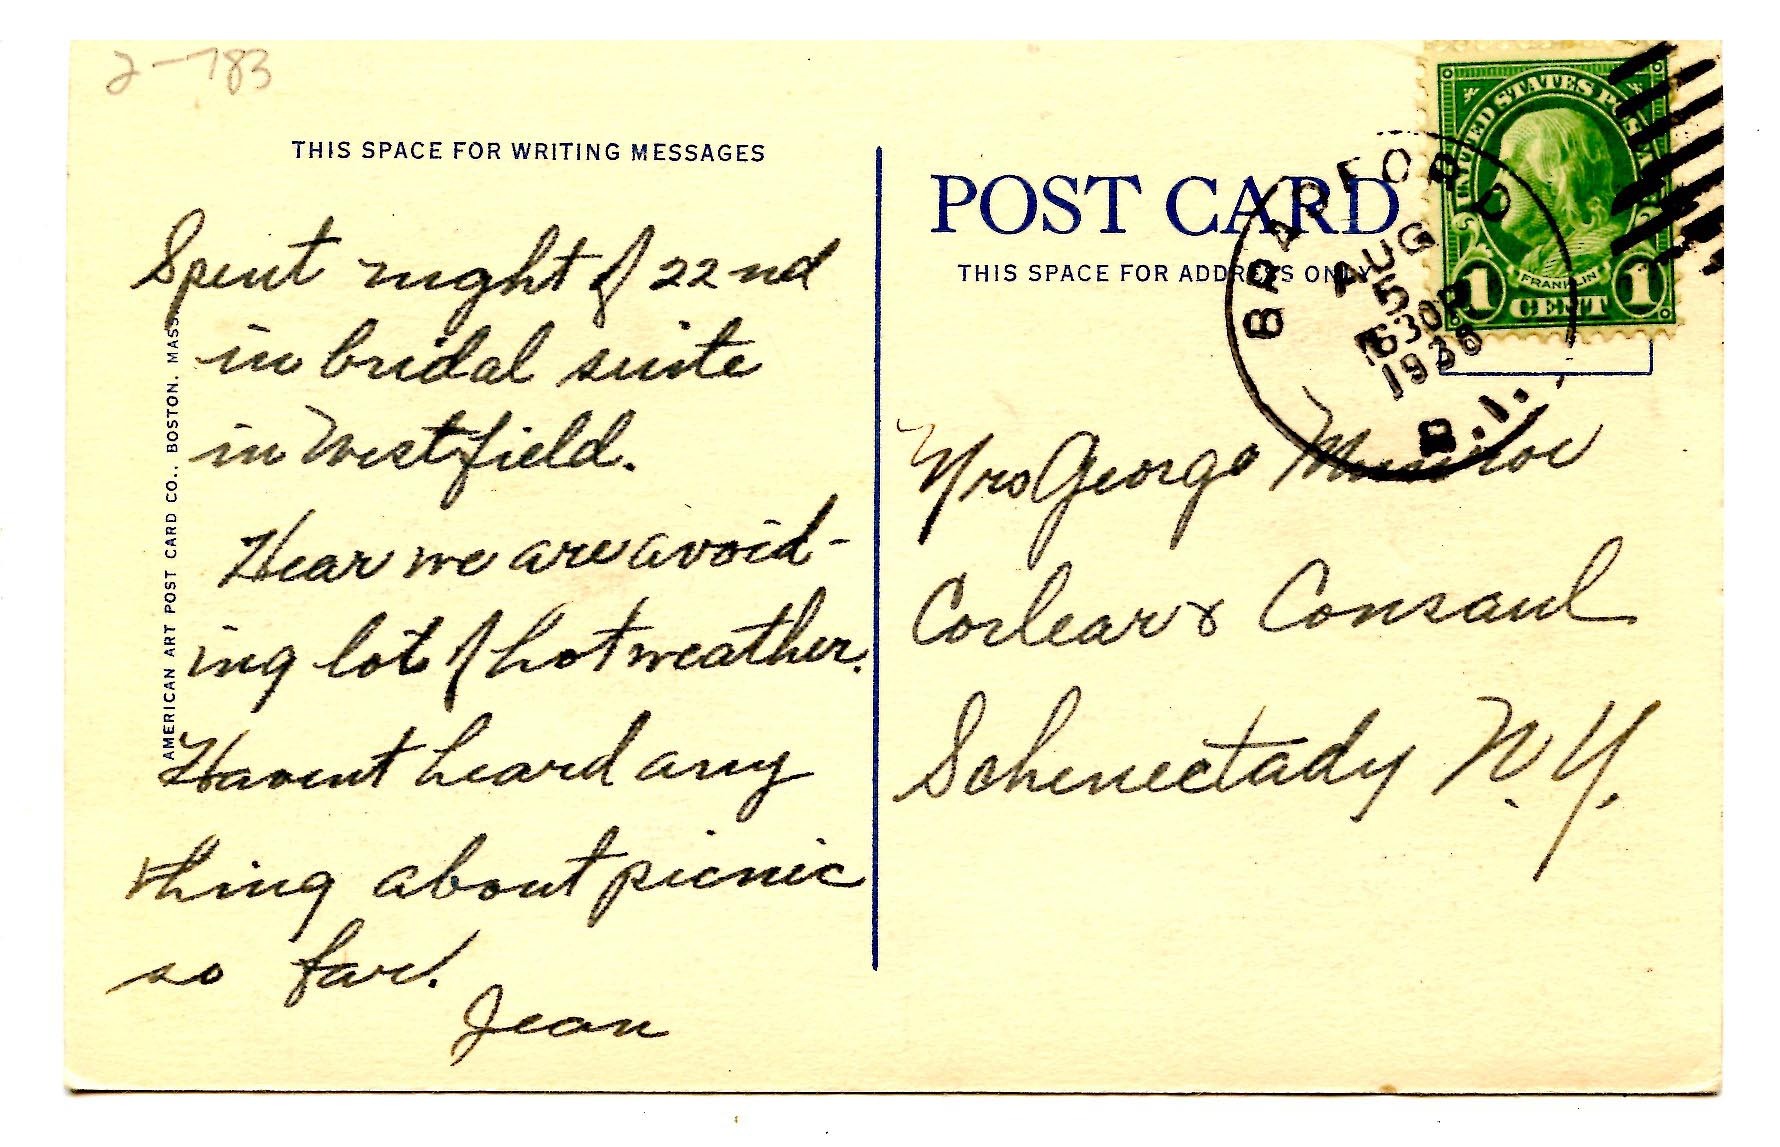 2-783
THIS SPACE FOR WRITING MESSAGES
Spent night of 22nd
in bridal suite
in Westfield.
Hear we are avoid-
ing lot of hot weather.
Havent heard any
thing about picnic
so far.
Jean
AMERICAN ART POST CARD CO., BOSTON, MASS.
POST CARD
THIS SPACE FOR ADDRESS ONLY
UNITED STATES POSTAGE
FRANKLIN
1 CENT 1
BRADFORD
AUG
5
630P
1936
R.I.
Mrs George Munroe
Corlear & Consaul
Schenectady N.Y.